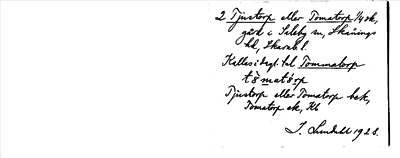 2 Tjustorp eller Tomatorp 1/4 sk,
gård i Saleby sn, Skånings
hd, Skarab. l.
Kallas i dagl. tal Tommatorp
tömatörp
Tjustorp eller Tomatorp bak,
Tomatorp ek, Kb
J. Lundahl 1928.